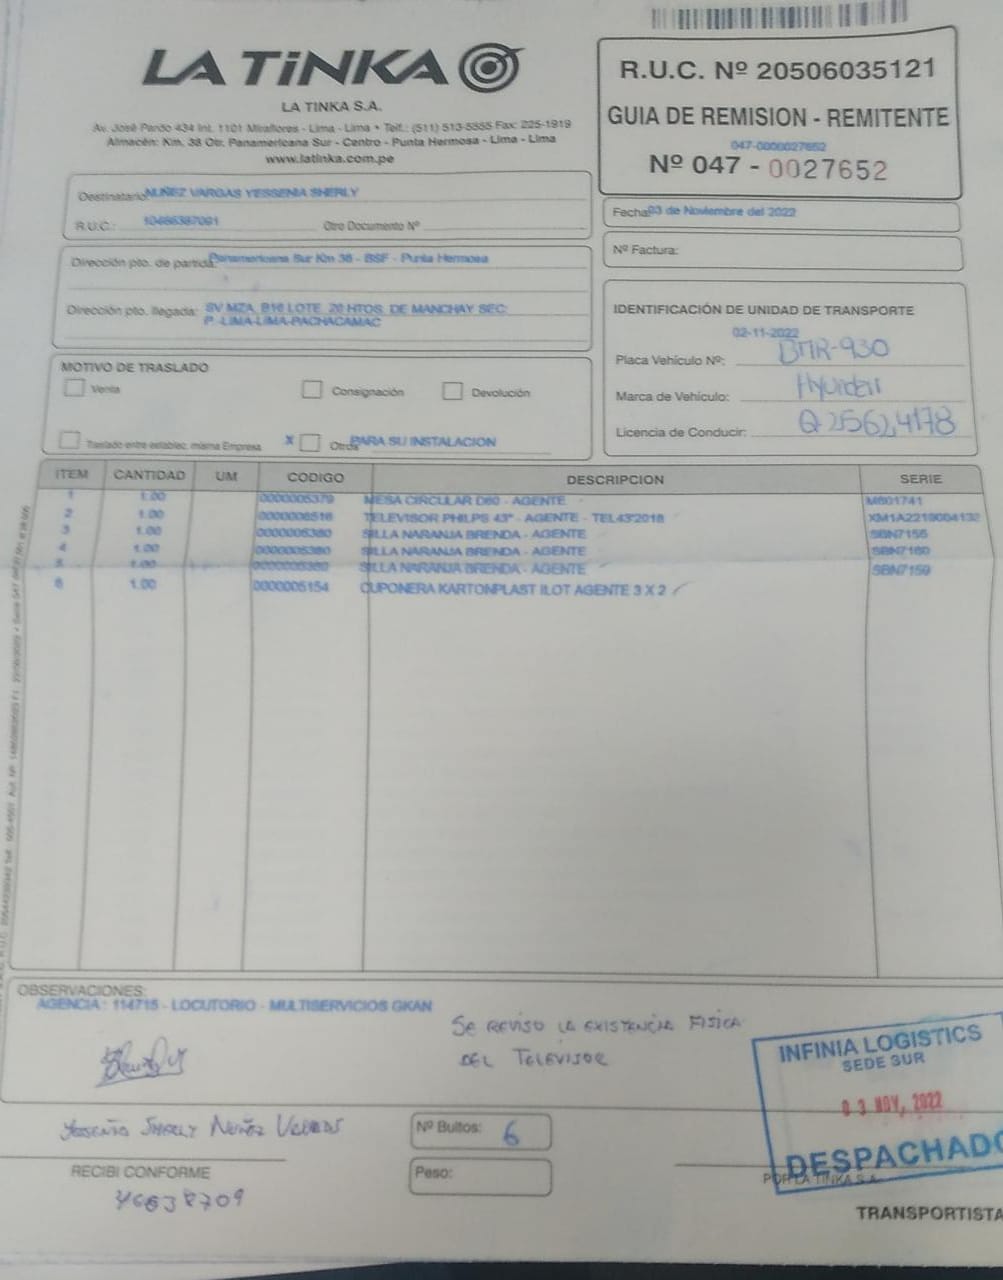 LA TiNKA
LA TINKA S.A.
Av. José Pardo 434 Int. 1101 Miraflores - Lima - Lima • Telf.: (511) 513-5555 Fax: 225-1919
Almacén: Km. 38 Otr. Panamericana Sur - Centro - Punta Hermosa - Lima - Lima
www.latinka.com.pe
R.U.C. Nº 20506035121
GUIA DE REMISION - REMITENTE
047-0000027652
Nº 047 - 0027652
Destinatario: NUÑEZ VARGAS YESSENIA SHERLY
R.U.C.: 10466387091 Otro Documento Nº
Fecha: 03 de Noviembre del 2022
Nº Factura:
Dirección pto. de partida: Panamericana Sur Km 38 - BSF - Punta Hermosa
Dirección pto. llegada: SV MZA. B16 LOTE. 20 HTOS. DE MANCHAY SEC.
P. -LIMA-LIMA-PACHACAMAC
IDENTIFICACIÓN DE UNIDAD DE TRANSPORTE
02-11-2022
Placa Vehículo Nº: BMR-930
Marca de Vehículo: Hyundai
Licencia de Conducir: Q25624178
MOTIVO DE TRASLADO
Venta Consignación Devolución
Traslado entre establec. misma Empresa X Otros PARA SU INSTALACION
ITEM CANTIDAD UM CODIGO DESCRIPCION SERIE
1 1.00 0000005379 MESA CIRCULAR D60 - AGENTE M601741
2 1.00 0000006516 TELEVISOR PHILPS 43" - AGENTE - TEL43'2018 XM1A2219004132
3 1.00 0000005380 SILLA NARANJA BRENDA - AGENTE SBN7155
4 1.00 0000005380 SILLA NARANJA BRENDA - AGENTE SBN7160
5 1.00 0000005380 SILLA NARANJA BRENDA - AGENTE SBN7159
6 1.00 0000005154 CUPONERA KARTONPLAST ILOT AGENTE 3 X 2
OBSERVACIONES:
AGENCIA : 114715 - LOCUTORIO - MULTISERVICIOS GKAN
SE REVISO LA EXISTENCIA FISICA
DEL TELEVISOR
INFINIA LOGISTICS
SEDE SUR
03 NOV, 2022
DESPACHADO
Nuñez
Nº Bultos: 6
RECIBI CONFORME
Peso:
POR LA TINKA S.A.
46638709
TRANSPORTISTA